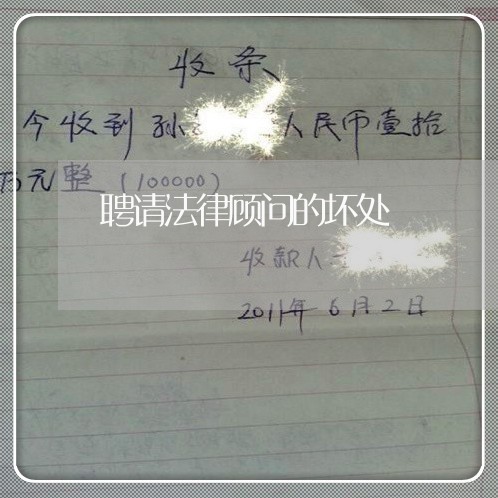 收条
今收到孙 人民币壹拾
万元整（100000）
聘请法律顾问的坏处
收款人
2011年6月2日